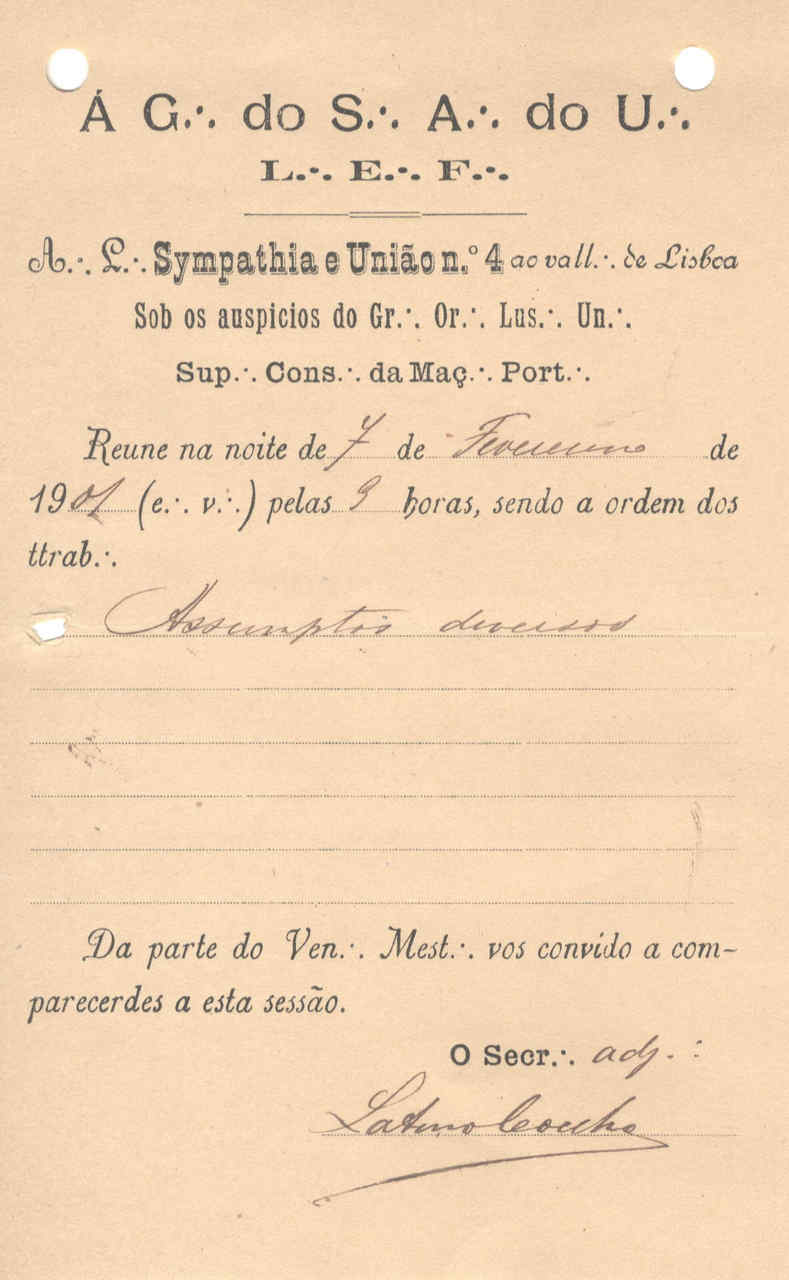 Á G.·. do S.·. A.·. do U.·.
L.·. E.·. F.·.
A.·. L.·. Sympathia e União n.º 4 ao vall.·. de Lisboa
Sob os auspicios do Gr.·. Or.·. Lus.·. Un.·.
Sup.·. Cons.·. da Maç.·. Port.·.
Reune na noite de 7 de Fevereiro de
1901 (e.·. v.·.) pelas 9 horas, sendo a ordem dos
ttrab.·.
Assumptos diversos
Da parte do Ven.·. Mest.·. vos convido a com-
parecerdes a esta sessão.
O Secr.·. adj.·.
Latino Coelho